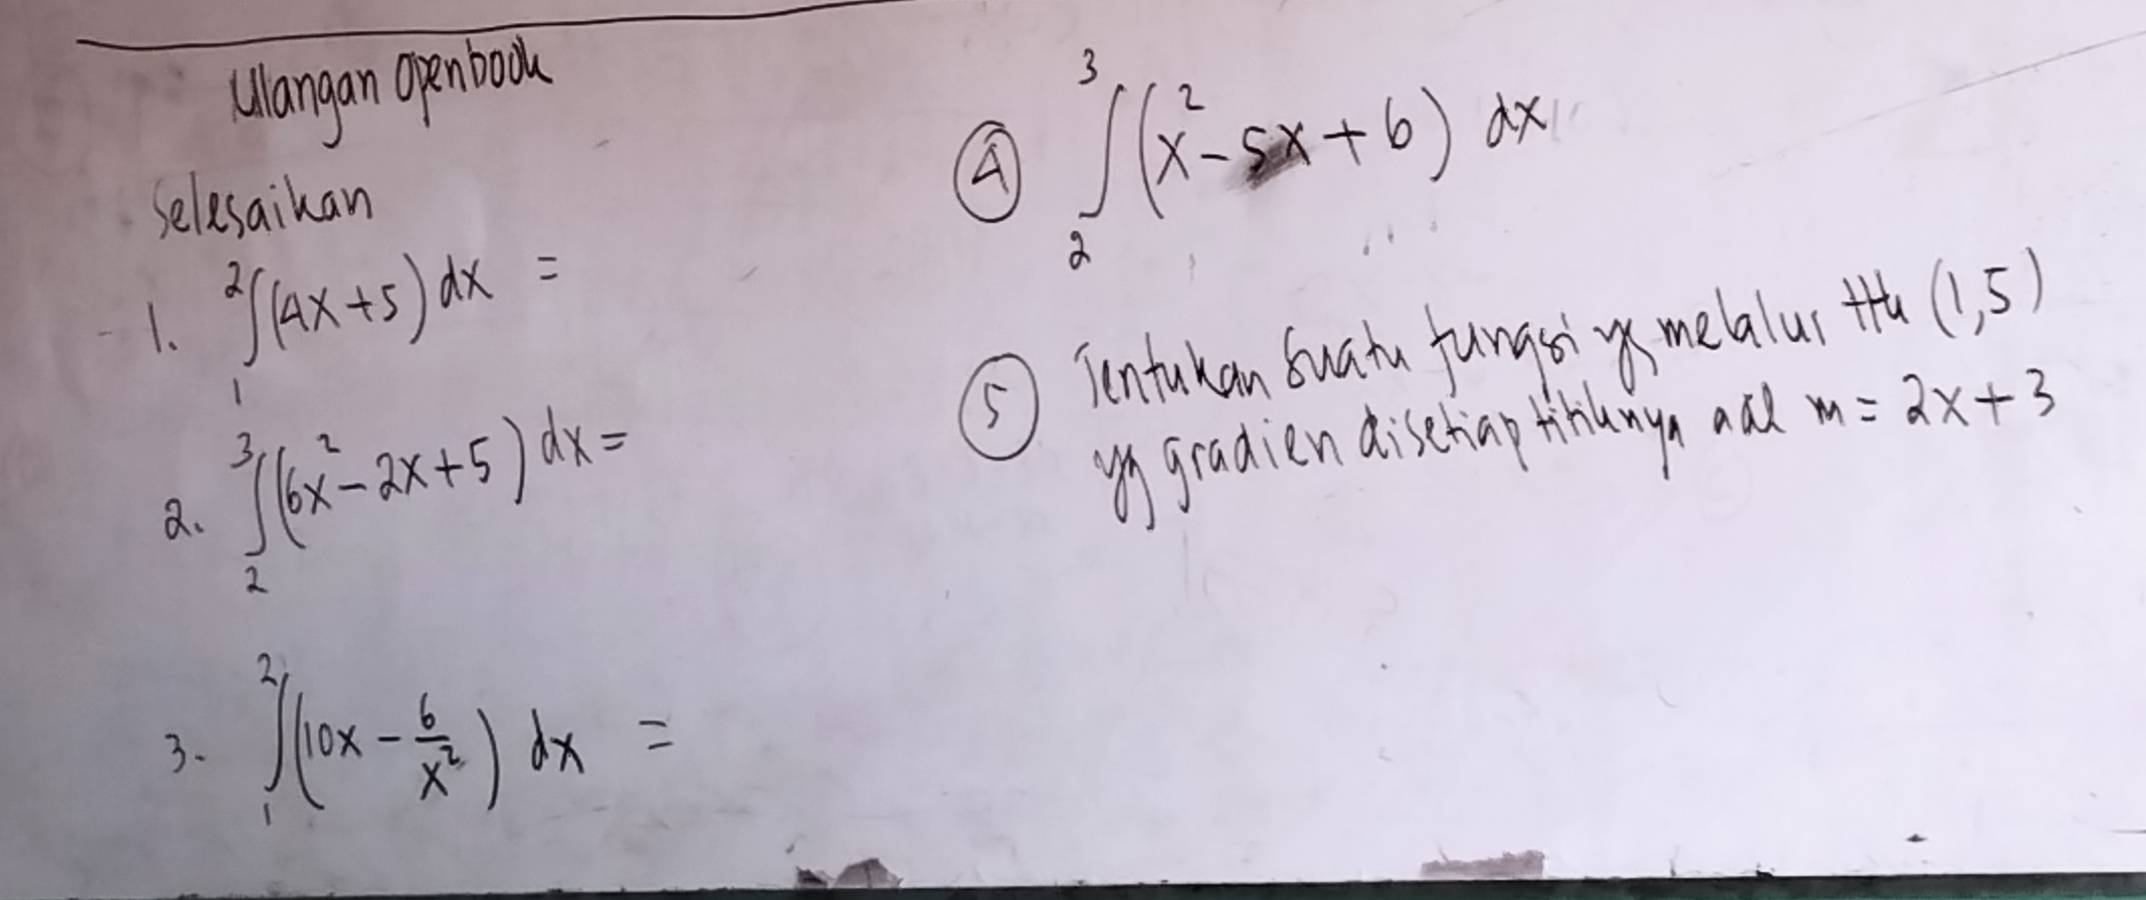 Ulangan Openbook
Selesaikan
1. ²∫₁ (4x+5) dx =
2. ³∫₂ (6x²-2x+5) dx =
3. ²∫₁ (10x - 6/x²) dx =
④ ³∫₂ (x²-5x+6) dx
⑤ Tentukan suatu fungsi yg melalui ttk (1,5)
yg gradien disetiap titiknya adl m = 2x+3